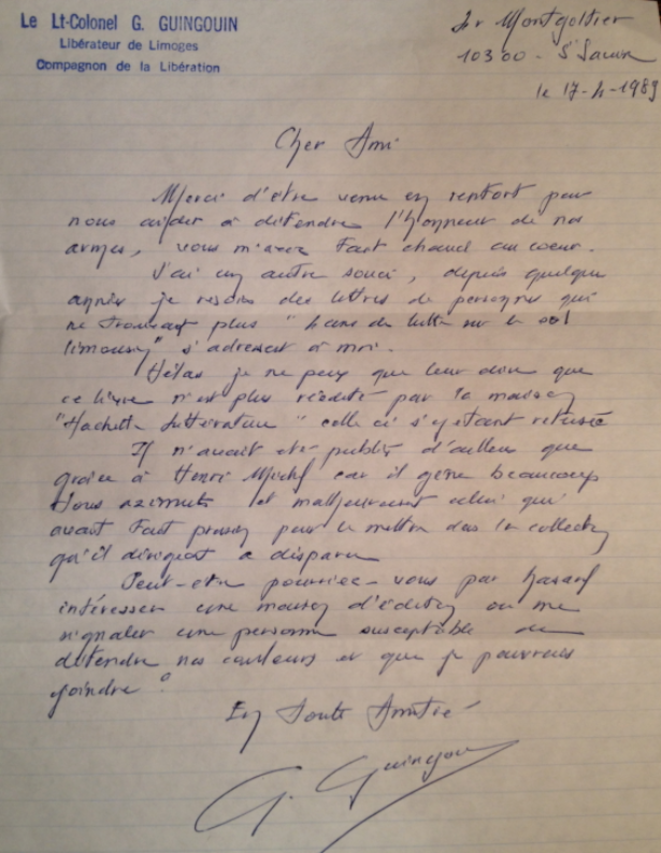 Le Lt-Colonel G. GUINGOUIN
Libérateur de Limoges
Compagnon de la Libération
Montgolfier
10300 - St Savine
le 17-4-1989
Cher Ami
Merci d'être venu en renfort pour
nous aider à défendre l'honneur de nos
armes, vous m'avez fait chaud au coeur.
J'ai un autre souci, depuis quelques
années je reçois des lettres de personnes qui
ne trouvant plus "4 ans de lutte sur le sol
limousin" s'adressent à moi.
Hélas je ne peux que leur dire que
ce livre n'est plus réédité par la maison
"Hachette Littérature" celle ci s'y étant refusée
Il n'avait été publié d'ailleurs que
grâce à Henri Michel car il gêne beaucoup
tous azimuts et malheureusement celui qui
avait fait pression pour le mettre dans la collection
qu'il dirigeait a disparu
Peut-être pourriez-vous par hasard
intéresser une maison d'édition ou me
signaler une personne susceptible de
défendre nos couleurs et que je pourrais
joindre?
En toute Amitié
G. Guingouin